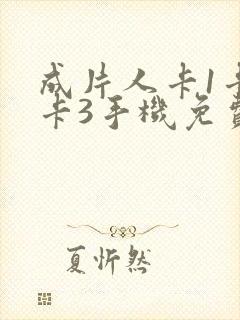 成片人卡1卡
卡3手機免費
夏忻然